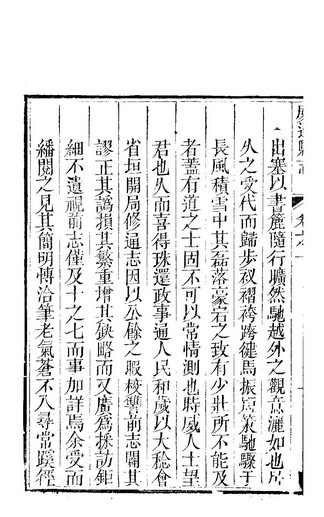 出塞以書麓隨行曠然馳越外之觀意灑如也居
久之受代而歸步衩褶袴跨健馬振周策馳驟于
長風積雪中其磊落豪宕之致有少壯所不能及
者蓋有道之士固不可以常情測也時咸人士望
君也久而喜得珠還政事通人民和歲以大稔會
省垣開局修通志因以公餘之暇校讐前志闢其
謬正其譌損其繁重增其缺略而又廣為採訪鉅
細不遺視前志僅及十之七而事加詳焉余受而
繙閱之見其簡明愽洽筆老氣蒼不入尋常蹊徑